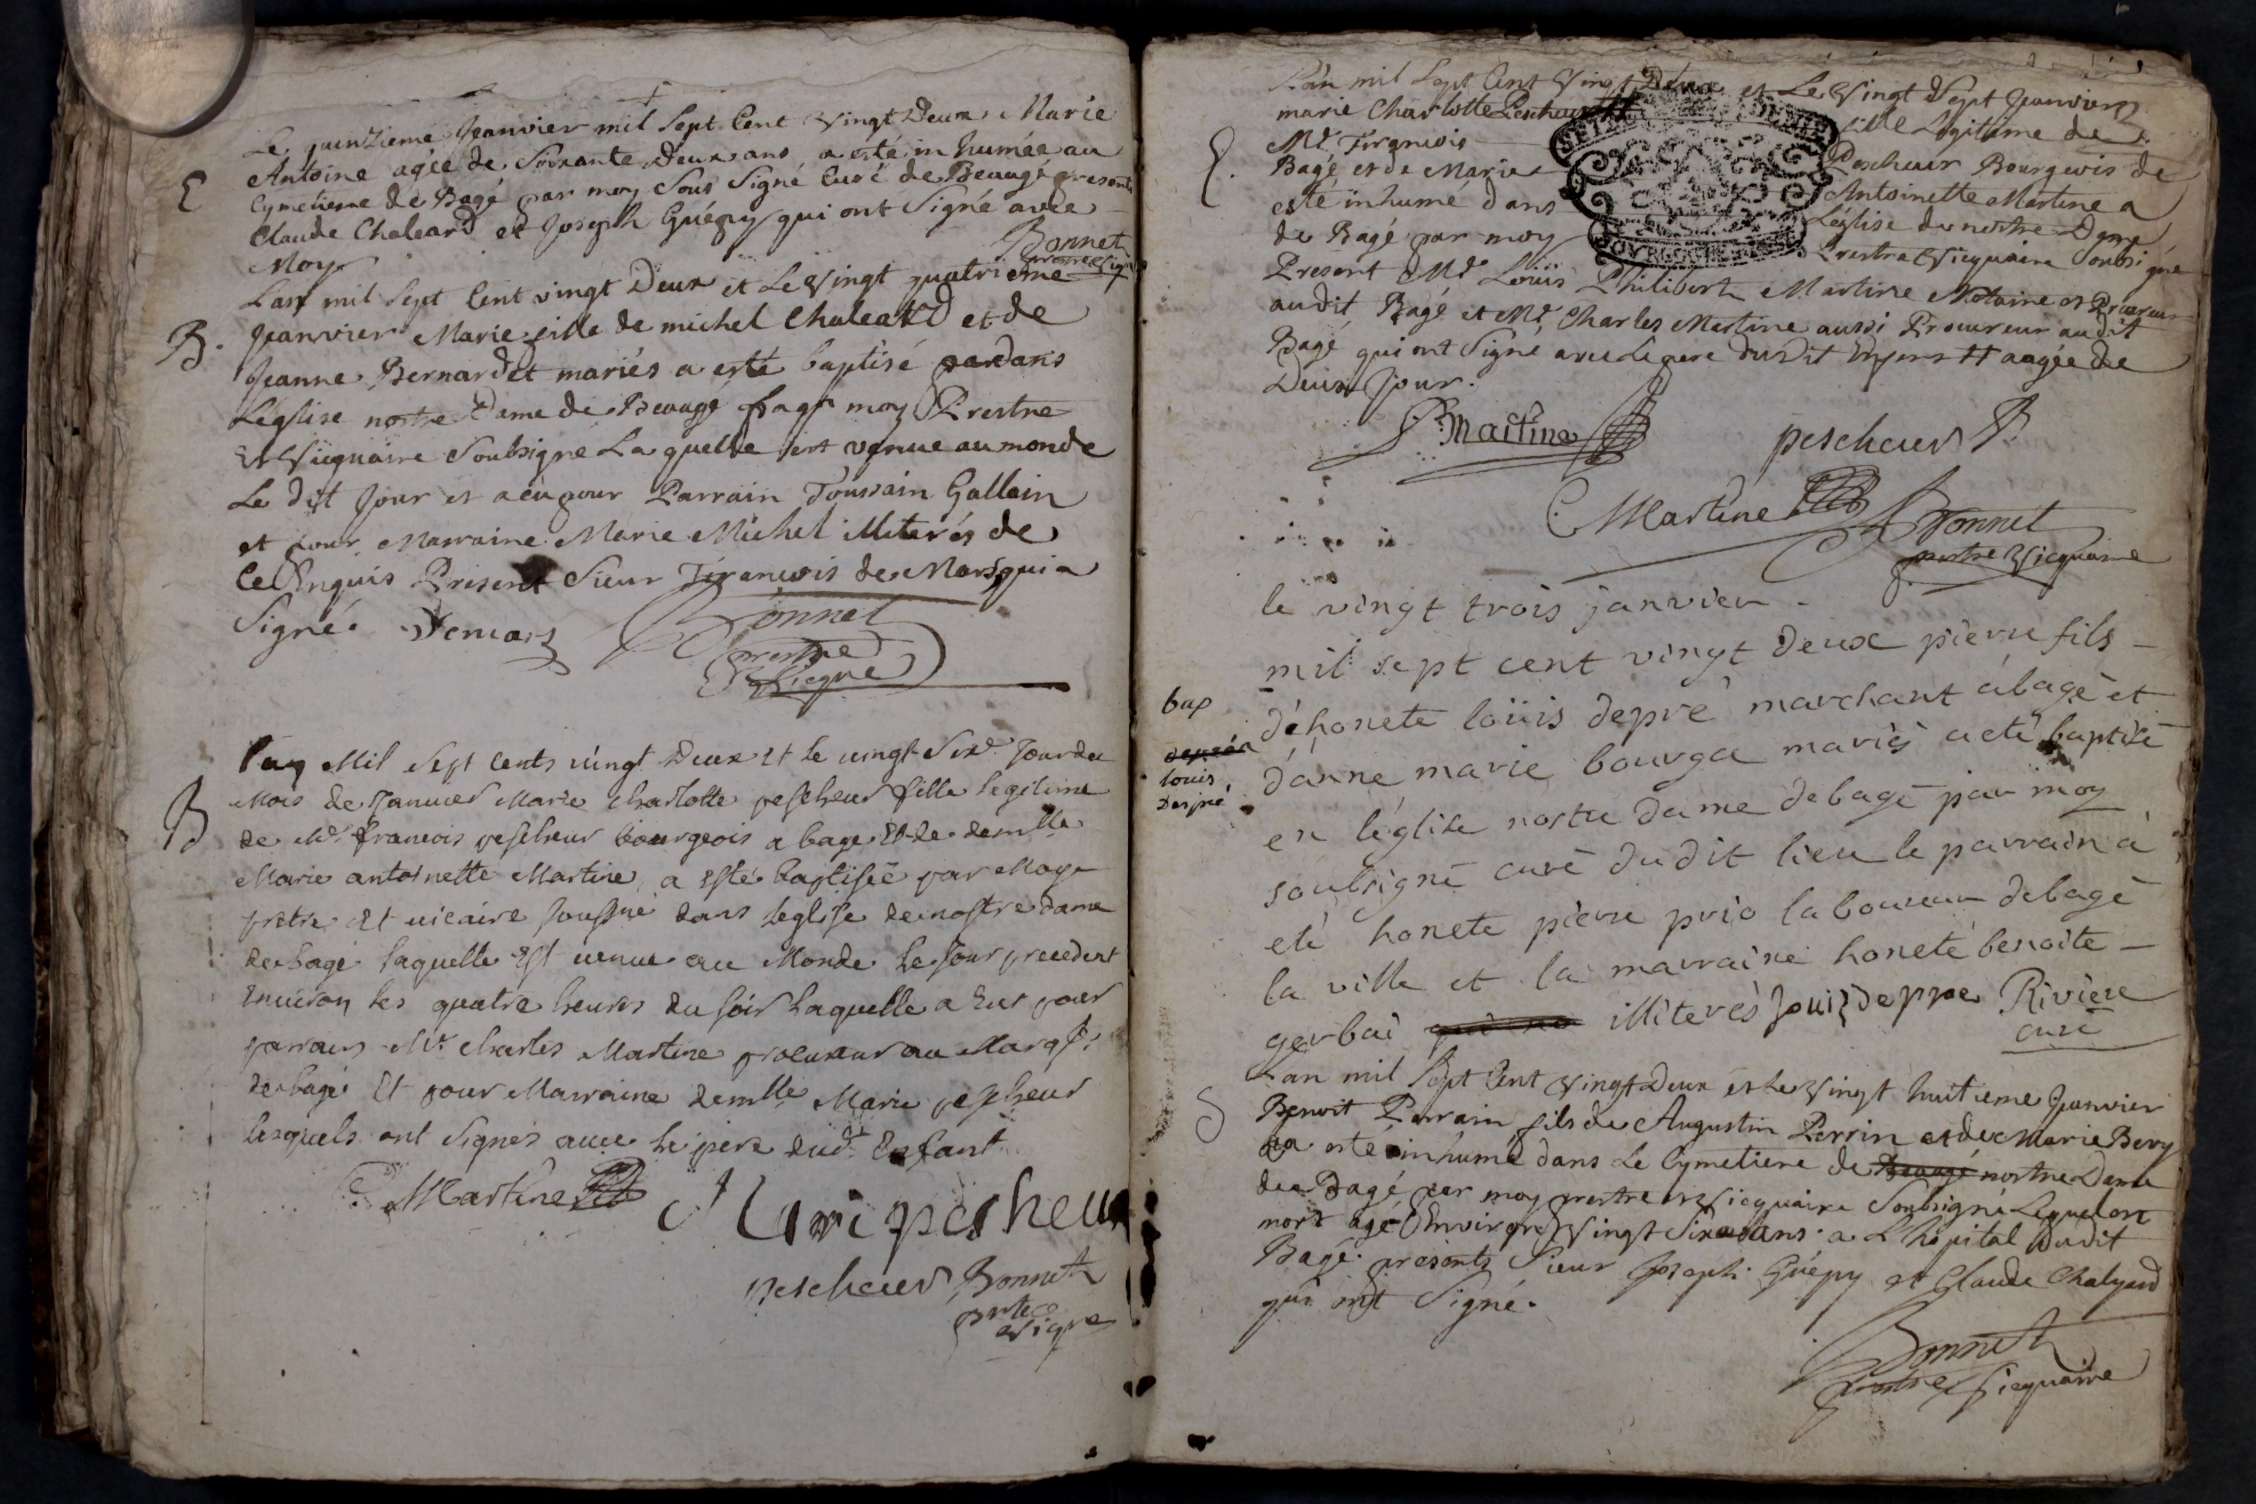 Le quinzieme Jeanvier mil Sept Cent Vingt Deux Marie
E
Antoine agée de Soixante Deux ans a esté inhumée au
Cymetiere de Bagé par moy Sous Signé Curé de Beaugé presents
Claude Chaleard et Joseph Guépy qui ont Signé avec
Moy
Bonnet
L'an mil Sept Cent vingt Deux et Le Vingt quatrieme
B.
Jeanvier Marie fille de michel Chaleard et de
Jeanne Bernardet mariés a esté baptisé dans
L'eglise nostre Dame de Beaugé moy Prestre
et Vicquaire Soubsigné Laquelle est venue au monde
Le dit Jour et a eû pour Parrain Toussain Gallain
et pour Marraine Marie Michel illiterés de
Ce Enquis Present Sieur François de Mars qui a
Signé. Demars
Bonnet
prestre
Vicqre
B
L'an Mil Sept Cents vingt Deux et le vingt Six.e Jour du
Mois de Janvier Marie Charlotte pescheur fille legitime
de Mr francois pescheur bourgeois a bage Et de demlle
Marie antoinette Martine, a esté baptisée par Moy
prêtre et vicaire soussigné dans l'eglise de nostre dame
de bagé laquelle est venue au Monde le Jour precedent
Environ les quatre heures du soir laquelle a Eut pour
parrain Mr Charles Martine procureur au
de bagé Et pour Marraine demlle Marie pescheur
lesquels ont signés avec le pere dudt Enfant
C. Martine
Mari pescheur
pescheur Bonnet
prtre
Viqre
L'an mil Sept Cent Vingt Deux et Le Vingt Sept Jeanvier
marie Charlotte Pescheur fille Legitime de
E.
Mr. François Pescheur Bourgeois de
Bagé et de Marie Antoinette Martine a
esté inhumé dans L'église de nostre Dame
de Bagé par moy Prestre Vicquaire Soussigné
Present Mr. Loüis Philibert Martine Notaire et Procureur
audit Bagé et Mr. Charles Martine aussi Procureur audit
Bagé qui ont Signé avec Le pere dudit Enfans aagée de
Deux Jour.
P. Martine
pescheur P.
C. Martine
Bonnet
prestre Vicquaire
le vingt trois janvier
mil sept cent vingt deux pierre fils
bap
louis
Depré
d'honete loüis depré marchant a bagé et
d'anne marie bourga mariés a eté baptisé
en l'eglise nostre dame de bagé par moy
soubsigné curé du dit lieu le parrain a
eté honete pierre prio laboureur de bagé
la ville et la marraine honete benoite
gerbai illiterés Louis deppre Riviere
curé
L'an mil Sept Cent Vingt Deux et Le Vingt huitieme Jeanvier
Benoit Perrain fils de Augustin Perrin et de Marie Bery
a esté inhumé dans Le Cymetiere de Beaugé nostre Dame
de Bagé par moy prestre et Vicquaire Soubsigné Lequel est
mort agé Environ Vingt Six ans a L'hôpital dudit
Bagé presents Sieur Joseph Guépy et Claude Chalyard
qui ont Signé.
Bonnet
prestre Vicquaire